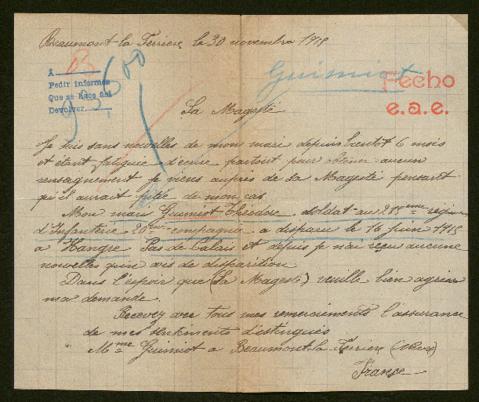 Beaumont-la-Ferriere, le 30 novembre 1915
A 03
Pedir informes
Que se hace así
Devolver
Guimiot
Fecho
e.a.e.
Sa Magesté
Je suis sans nouvelles de mon mari depuis bientot 6 mois
et étant fatiguée d'ecrire partout pour obtenir aucun
renseignement je viens auprès de sa Magesté pensant
qu'il aurait pitié de mon cas
Mon mari Guimiot Théodore, soldat au régim
d'Infanterie compagnie a disparu le 16 juin 1915
a Hangre Pas de Calais et depuis je n'ai reçu aucune
nouvelles qu'un avis de disparition
Dans l'espoir que (Sa Magesté) veuille bien agréer
ma demande.
Recevez avec tous mes remerciements l'assurance
de mes sentiments distingués
Mme Guimiot a Beaumont-la-Ferriere
France